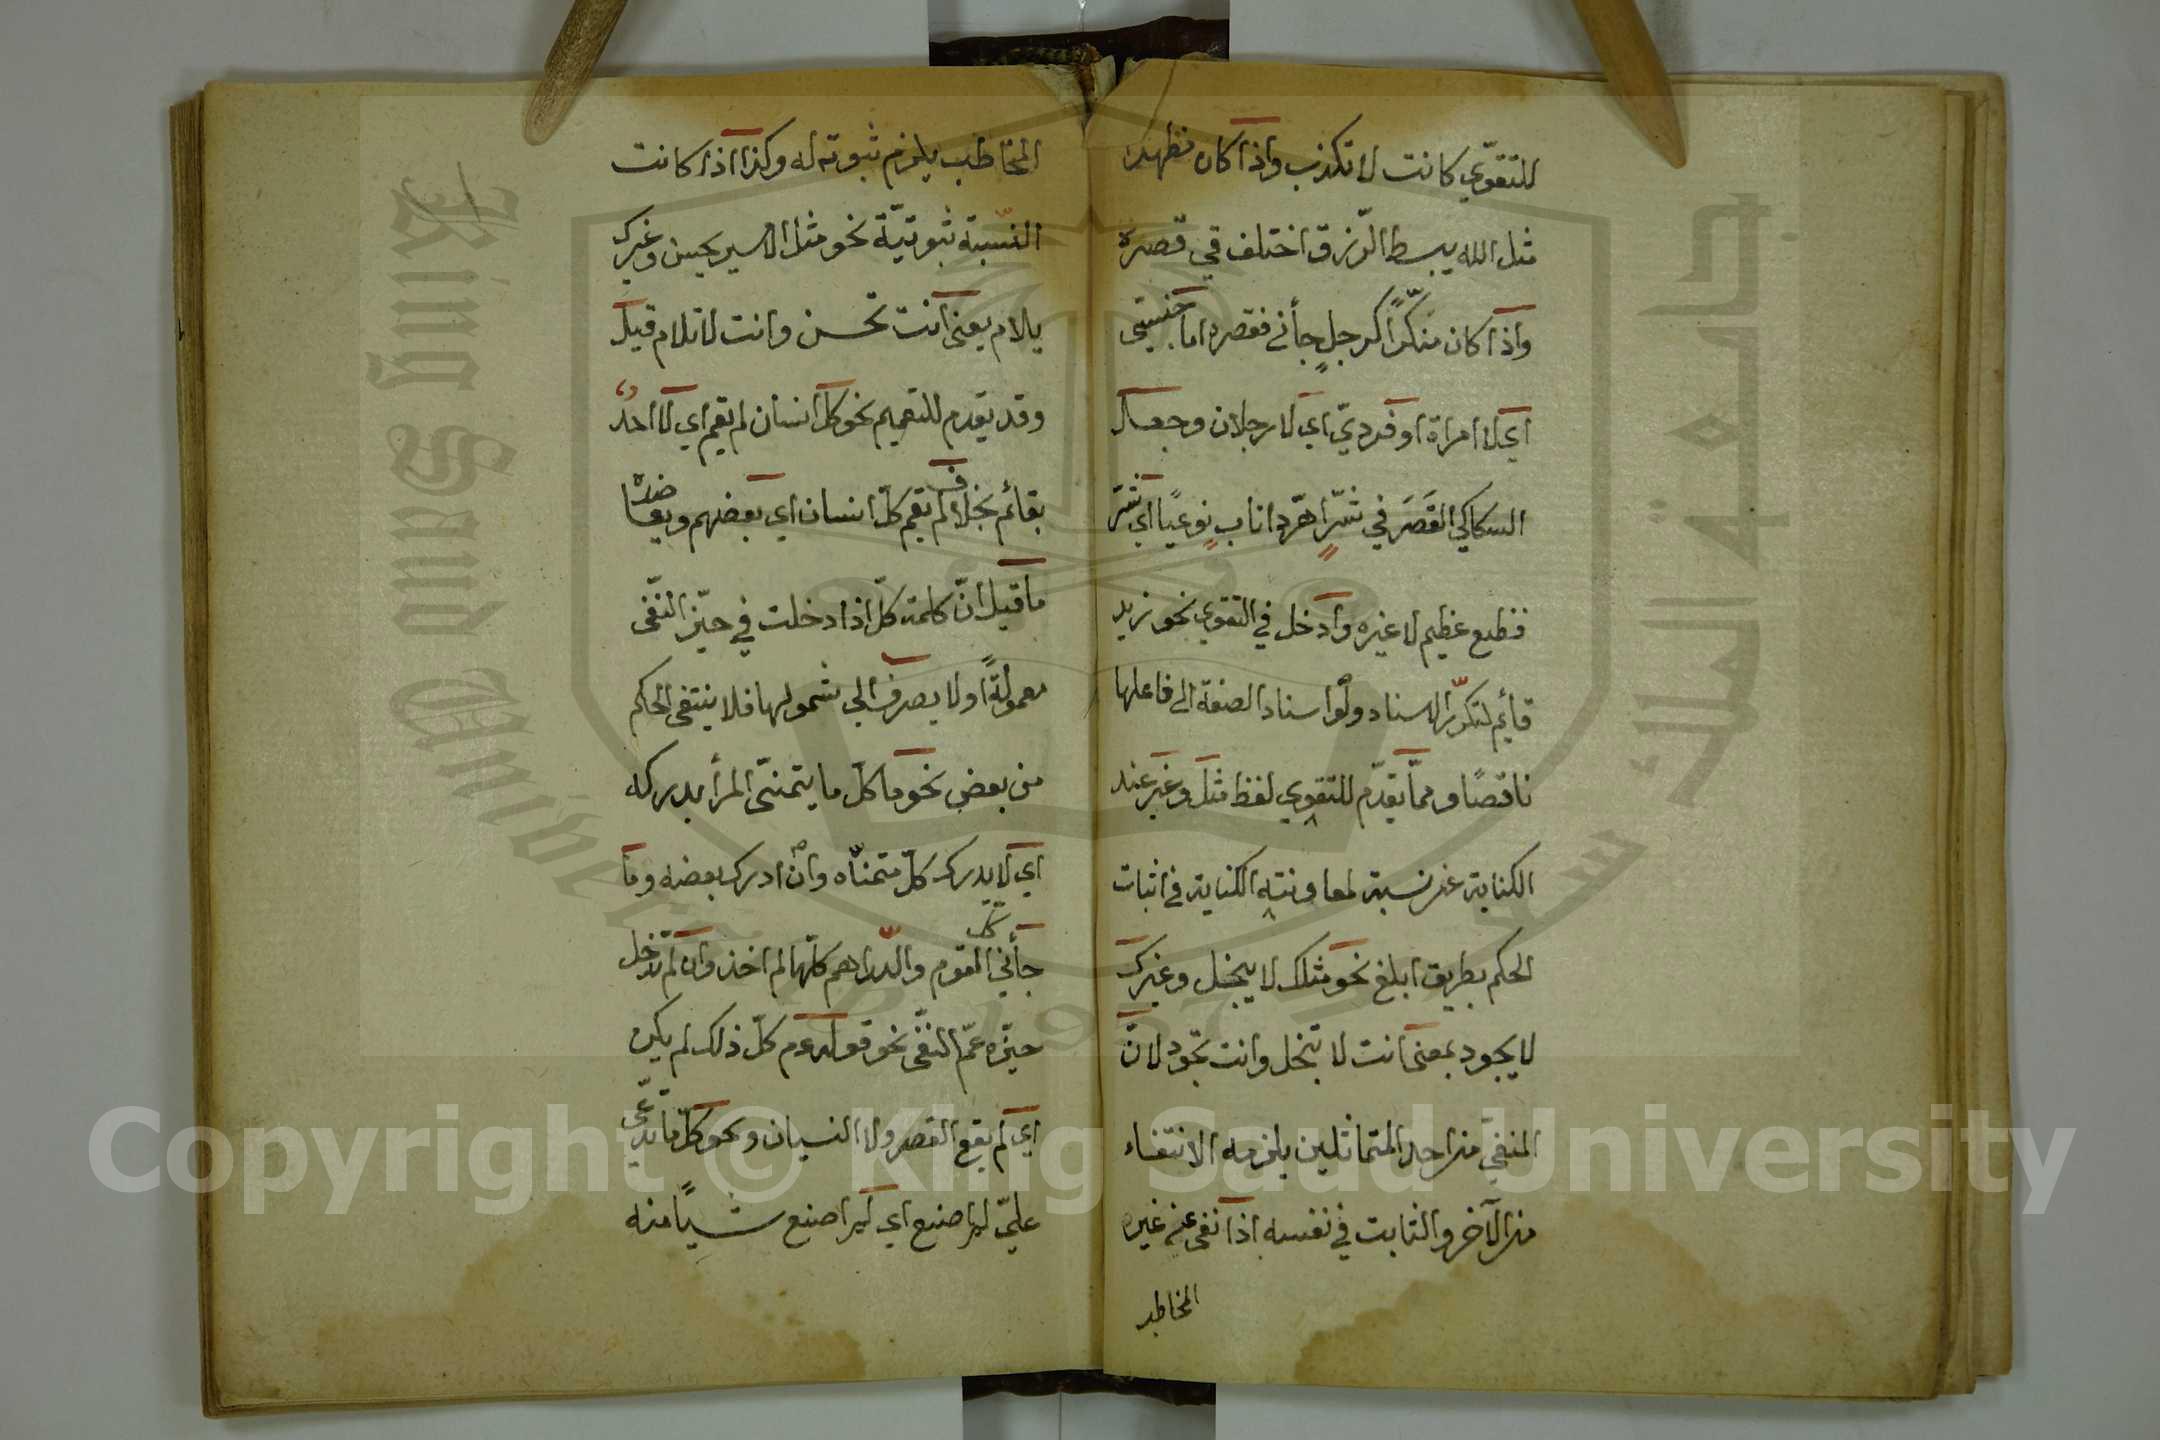 للتقوّي كانت لا تكذب واذا كان مظهرا
مثل الله يبسط الرّزق اختلف في قصره
واذا كان منكّرًا كرجلٍ جأني فقصره اما جنسيّ
اي لا امراة او فرديّ اي لا رجلان وجعل
السكاكي القَصَرَ في شرٌّ اهرّ ذا نابٍ نوعيًا اي شرّ
فظيع عظيم لا غيره وادخل في التقوي نحو زيد
قايم لتكرّر الاسناد ولو اسناد الصفة الى فاعلها
ناقصًا ومما يقدّم للتقوي لفظ مثل وغير عند
الكناية عن نسبة لمعاونته الكناية في اثبات
الحكم بطريق ابلغ نحو مثلك لا يبخل وغيرك
لا يجود بمعنى انت لا تبخل وانت تجود لانّ
المنفيّ من احد المتماثلين يلزمه الانتفاء
من الآخر والثابت في نفسه اذا نفى عن غيره
المخاطب
المخاطب يلزم ثبوته له وكذا اذا كانت
النّسبة ثبوتيّة نحو مثل الاسير يحبس وغيرك
يلام بمعنى انت تحسن وانت لا تلام قيل
وقد يقدم للتعميم نحو كل انسان لم يقم اي لا احدٌ
بقائم بخلاف لم يقم كلّ انسان اي بعضهم ويعاضده
ما قيل انّ كلمة كلّ اذا دخلت في حيّز النّفى
معمولةً اولا يصرف الى شمولها فلا ينتفى الحكم
من بعض نحو ما كلّ ما يتمنّى المرأ يدركه
اي لا يدرك كلّ متمنّاه وان ادرك بعضه وما
جأني كل القوم والدّراهم كلّها لم اخذ وان لم تدخل
حيّزه عمّ النّفى نحو قوله عم كلّ ذلك لم يكن
اي لم يقع القصر ولا النسيان ونحو كلّ ما تدّعى
عليّ لم اصنع اي لم اصنع شيًا منه
Copyright © King Saud University
King Saud University
جامعة الملك سعود